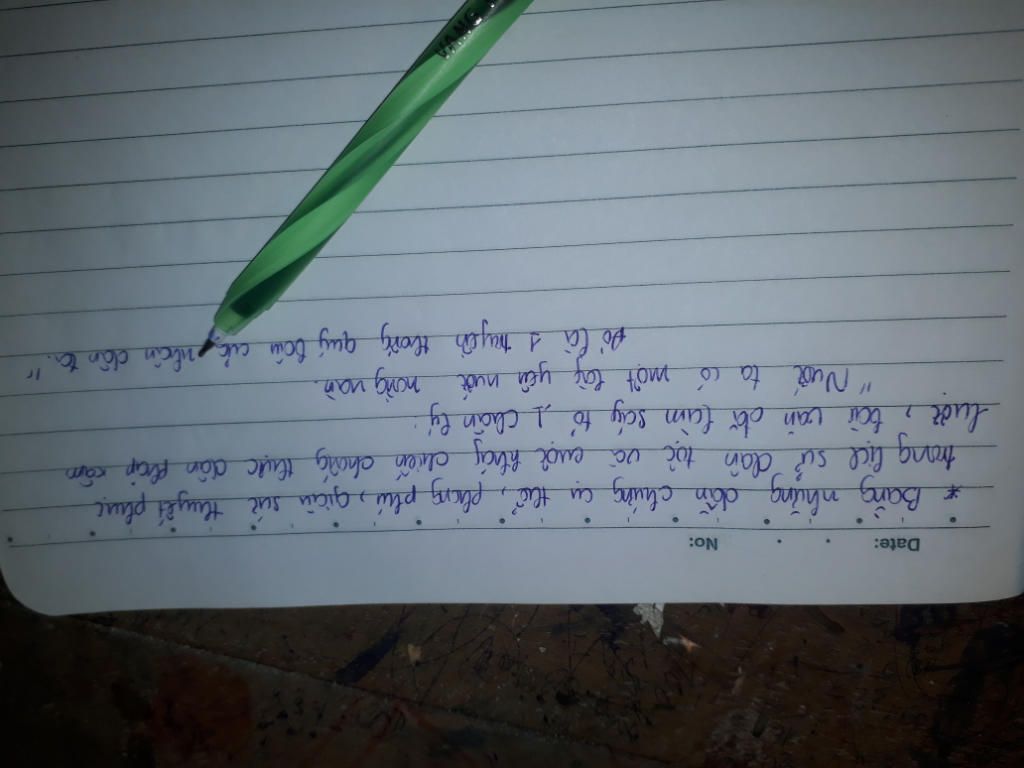 Date: No:
* Bằng những dẫn chứng cụ thể, phong phú, giàu sức thuyết phục
trong lịch sử dân tộc và cuộc kháng chiến chống thực dân Pháp xâm
lược, bài văn đã làm sáy tỏ 1 chân lý:
"Nước ta có một lòng yêu nước nồng nàn.
Đó là 1 truyền thống quý báu của nhân dân ta."
VANG